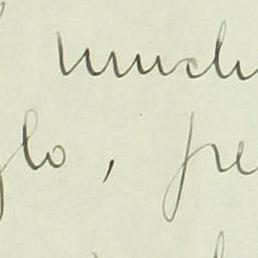 much
glo, pre